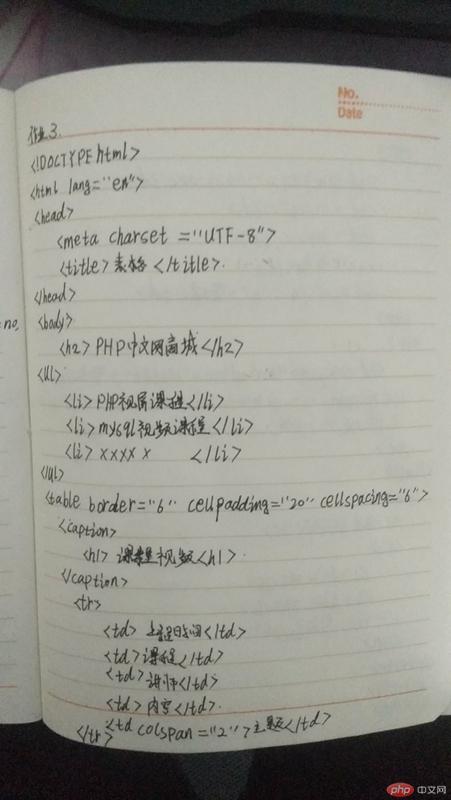 No.
Date
作业3.
<!DOCTYPE html>
<html lang="en">
<head>
<meta charset ="UTF-8">
<title>表格</title>.
</head>
<body>
<h2>PHP中文网商城</h2>
<ul>
<li>PHP视屏课程</li>
<li>mysql视频课程</li>
<li>xxxx x </li>
</ul>
<table border="6" cellpadding="20" cellspacing="6">
<caption>
<h1>课程视频<h1>.
</caption>
<tr>
<td>上课时间</td>
<td>课程</td>
<td>讲师</td>
<td>内容</td>.
<td colspan="2">主题</td>
</tr>
=no,
php 中文网